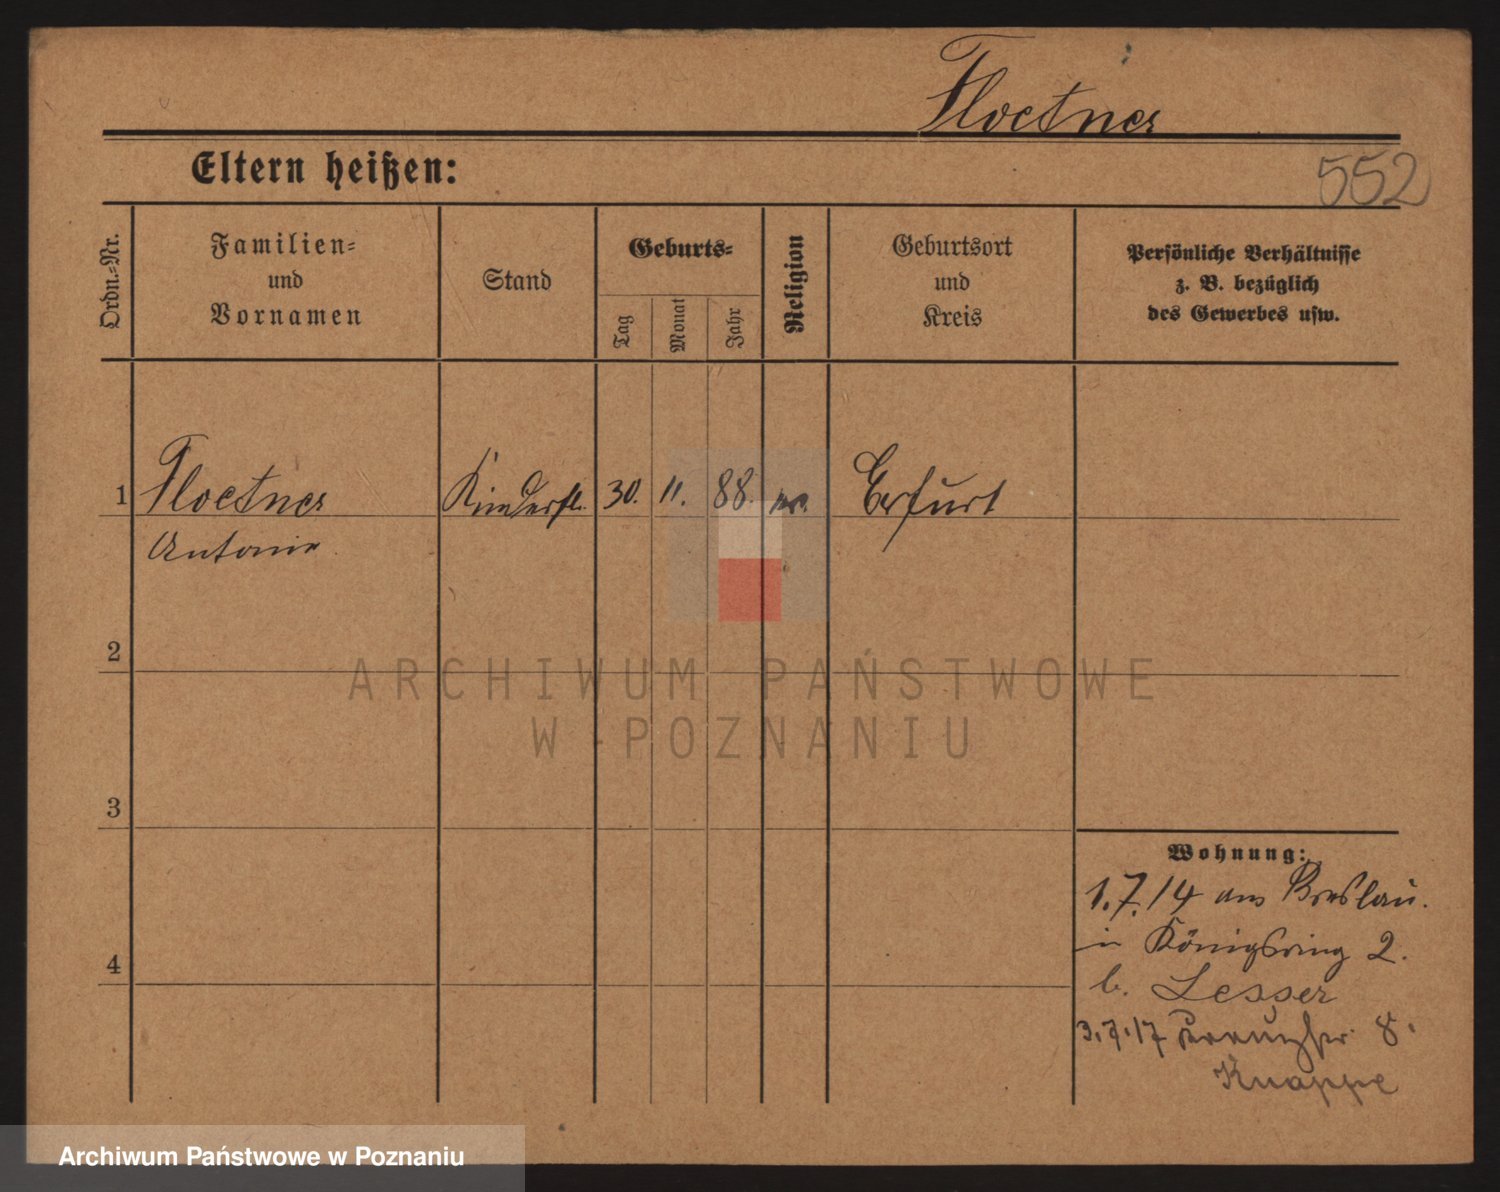 Floetner
Eltern heißen:
552
Ordn.=Nr.
Familien=
und
Vornamen
Stand
Geburts=
Tag
Monat
Jahr
Religion
Geburtsort
und
Kreis
Persönliche Verhältnisse
z. B. bezüglich
des Gewerbes usw.
1 Floetner Kinderfl. 30. 11. 88. Erfurt
Antonie
2
3
4
Wohnung:
1.7.14 aus Breslau.
in Königsring 2.
b. Lesser
3.7.17 8.
Knappe
ARCHIWUM PAŃSTWOWE
W POZNANIU
Archiwum Państwowe w Poznaniu